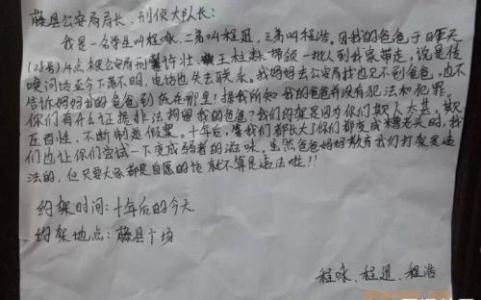 藤县公安局局长、刑侦大队长:
我是一名学生叫程咏,二弟叫程迅,三弟叫程浩。因我的爸爸于昨天
(21号)4点被公安局刑警许壮、王柱献带领一批人到我家带走,说是传
唤问话至今下落不明,电话也失去联系,我妈妈去公安局找也见不到爸爸,也不
告诉妈妈我的爸爸到底在哪里!据我所知我的爸爸并没有犯法和犯罪,
你们有什么证据非法拘留我的爸爸?我们约架是因为你们欺人太甚,欺
压百姓,不断制造假案,十年后,等我们都长大了你们都变成糟老头时,我
们也让你们尝试一下变成弱者的滋味。虽然爸爸妈妈教育我们打架是违
法的,但只要大家都是自愿的话就不算是违法啦!!
约架时间:十年后的今天
约架地点:藤县广场
程咏、程迅、程浩